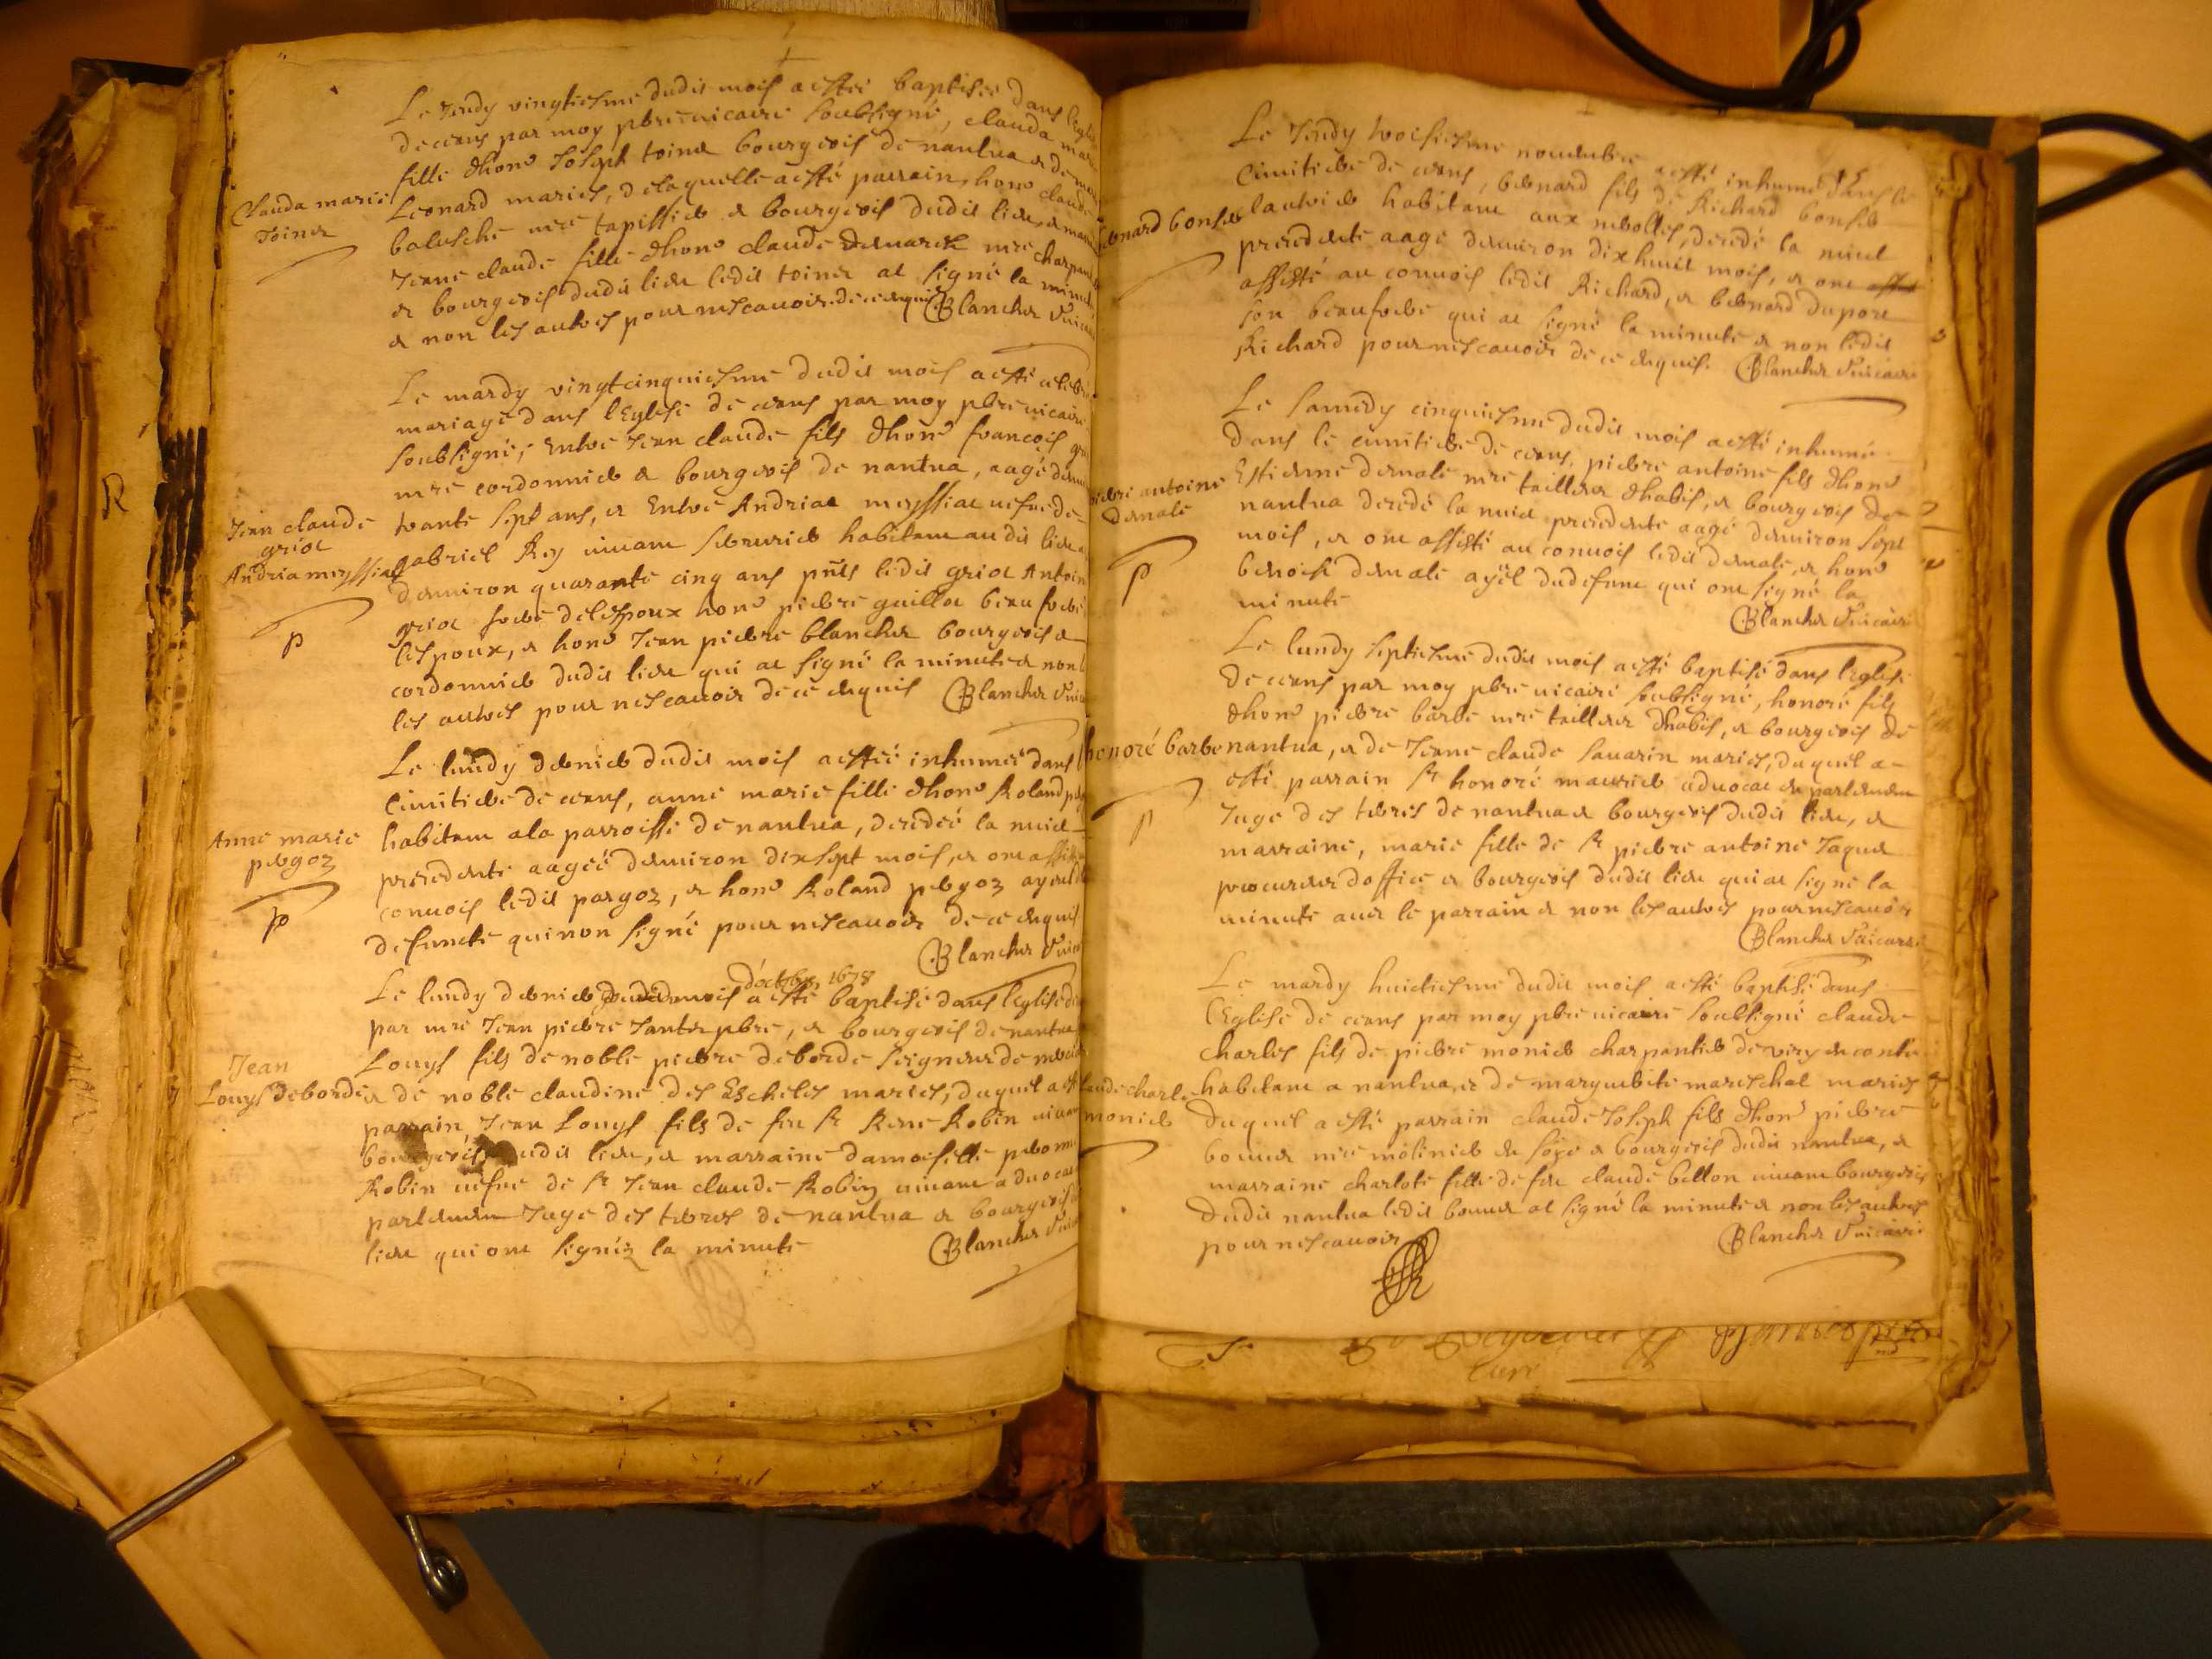 Le Jeudy vingtiesme dudit mois a esteé baptiseé dans l'Egli
de ceans par moy pbre vicaire soubsigné, clauda marie
fille d'hono Joseph toinet bourgeois de nantua et de
Clauda marie
Toinet
Leonard mariés, de laquelle a esté parrain hono claude
balusche mre tapissier et bourgeois dudit lieu, et
Jeane claude fille d'hono claude mre charpan
et bourgeois dudit lieu ledit toinet at signé la minute
et non les autres pour nescavoir de ce enquis Blanchet Vicai
Le mardy vingtcinquiesme dudit mois a esté celebré
mariage dans l'Eglise de ceans par moy pbre vicaire
soubsigné, Entre Jean claude fils d'hono francois
mre cordonnier et bourgeois de nantua, aagé
Jean claude
griot
Andria meyssiat
trante sept ans, et Entre Andriat meyssiat vefve de
gabriel Rey vivant serrurier habitant audit lieu
d'environ quarante cinq ans pnts ledit griot Antoin
griot frere de lespoux hono pierre guillot beau frere
lespoux, et hono Jean pierre blanchet bourgeois et
cordonnier dudit lieu qui at signé la minute et non
les autres pour nescavoir de ce enquis Blanchet Vica
p
Le lundy dernier dudit mois a esteé inhumeé dans
Cimitiere de ceans, anne marie fille d'hono Roland
Anne marie
pergoz
habitant a la parroisse de nantua, decedeé la nuit
precedente aageé d'environ dixsept mois, et ont assis
convois ledit pargoz, et hono Roland pergoz ayeul
defuncte qui non signé pour nescavoir de ce enquis
Blanchet Vica
p
d'octobre 1678
Le lundy dernier dudit mois a esté baptisé dans l'Eglise
par mre Jean pierre Jantet pbre, et bourgeois de nantua
Jean
Louys deborde
Louys fils de noble pierre deborde seigneur de
et de noble claudine des Eschelles mariés, duquel a est
parrain Jean Louys fils de feu sr Rene Robin vivant
bourgeois dudit lieu, et marraine damoiselle
Robin vefve de sr Jean claude Robin vivant advocat
parlement Juge des terres de nantua et bourgeois
lieu qui ont signéz la minute
Blanchet Vica
Le Jeudy troisiesme novembre a esté inhumé dans le
Cimitiere de ceans, bernard fils de Richard bonset
bernard bonset
laurier habitant aux nerolles, decedé la nuict
precedente aagé d'environ dixhuict mois, et ont
assisté au convois ledit Richard, et bernard duport
son beaufrere qui at signé la minute et non ledit
Richard pour nescavoir de ce enquis. Blanchet Vicaire
Le samedy cinquiesme dudit mois a esté inhumé
dans le cimitiere de ceans, pierre antoine fils d'hono
pierre antoine
dernale
Estienne dernale mre tailleur d'habis, et bourgeois de
nantua decedé la nuit precedente aagé d'environ sept
mois, et ont assisté au convois ledit dernale, et hono
benoist dernale ayël du defunt qui ont signé la
minute
Blanchet Vicaire
p
Le lundy septiesme dudit mois a esté baptisé dans l'Eglise
de ceans par moy pbre vicaire soubsigné, honoré fils
d'hono pierre barbe mre tailleur d'habis, et bourgeois de
honoré barbe
nantua, et de Jeane claude savarin mariés, duquel a
esté parrain sr honoré maurier advocat en parlement
Juge des terres de nantua et bourgeois dudit lieu, et
marraine, marie fille de sr pierre antoine Jaquet
procureur d'office et bourgeois dudit lieu qui at signé la
minute avec le parrain et non les autres pour nescavoir
Blanchet Vicaire
p
Le mardy huictiesme dudit mois a esté baptisé dans
l'Eglise de ceans par moy pbre vicaire soubsigné claude
charles fils de pierre monier charpantier de viry en conté
claude charle
monier
habitant a nantua, et de marguerite mareschal mariés
duquel a esté parrain claude Joseph fils d'hono pierre
bouvet mre molinier en soye et bourgeois dudit nantua, et
marraine charlote fille de feu claude bellon vivant bourgeois
dudit nantua ledit bouvet at signé la minute et non les autres
pour nescavoir
Blanchet Vicaire
Curé